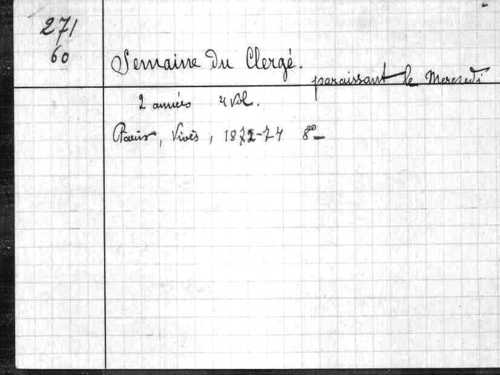 271
60
Semaine du Clergé.
paraissant le Mercredi
2 années 4 vol.
Paris, Vivès, 1872-74 8º